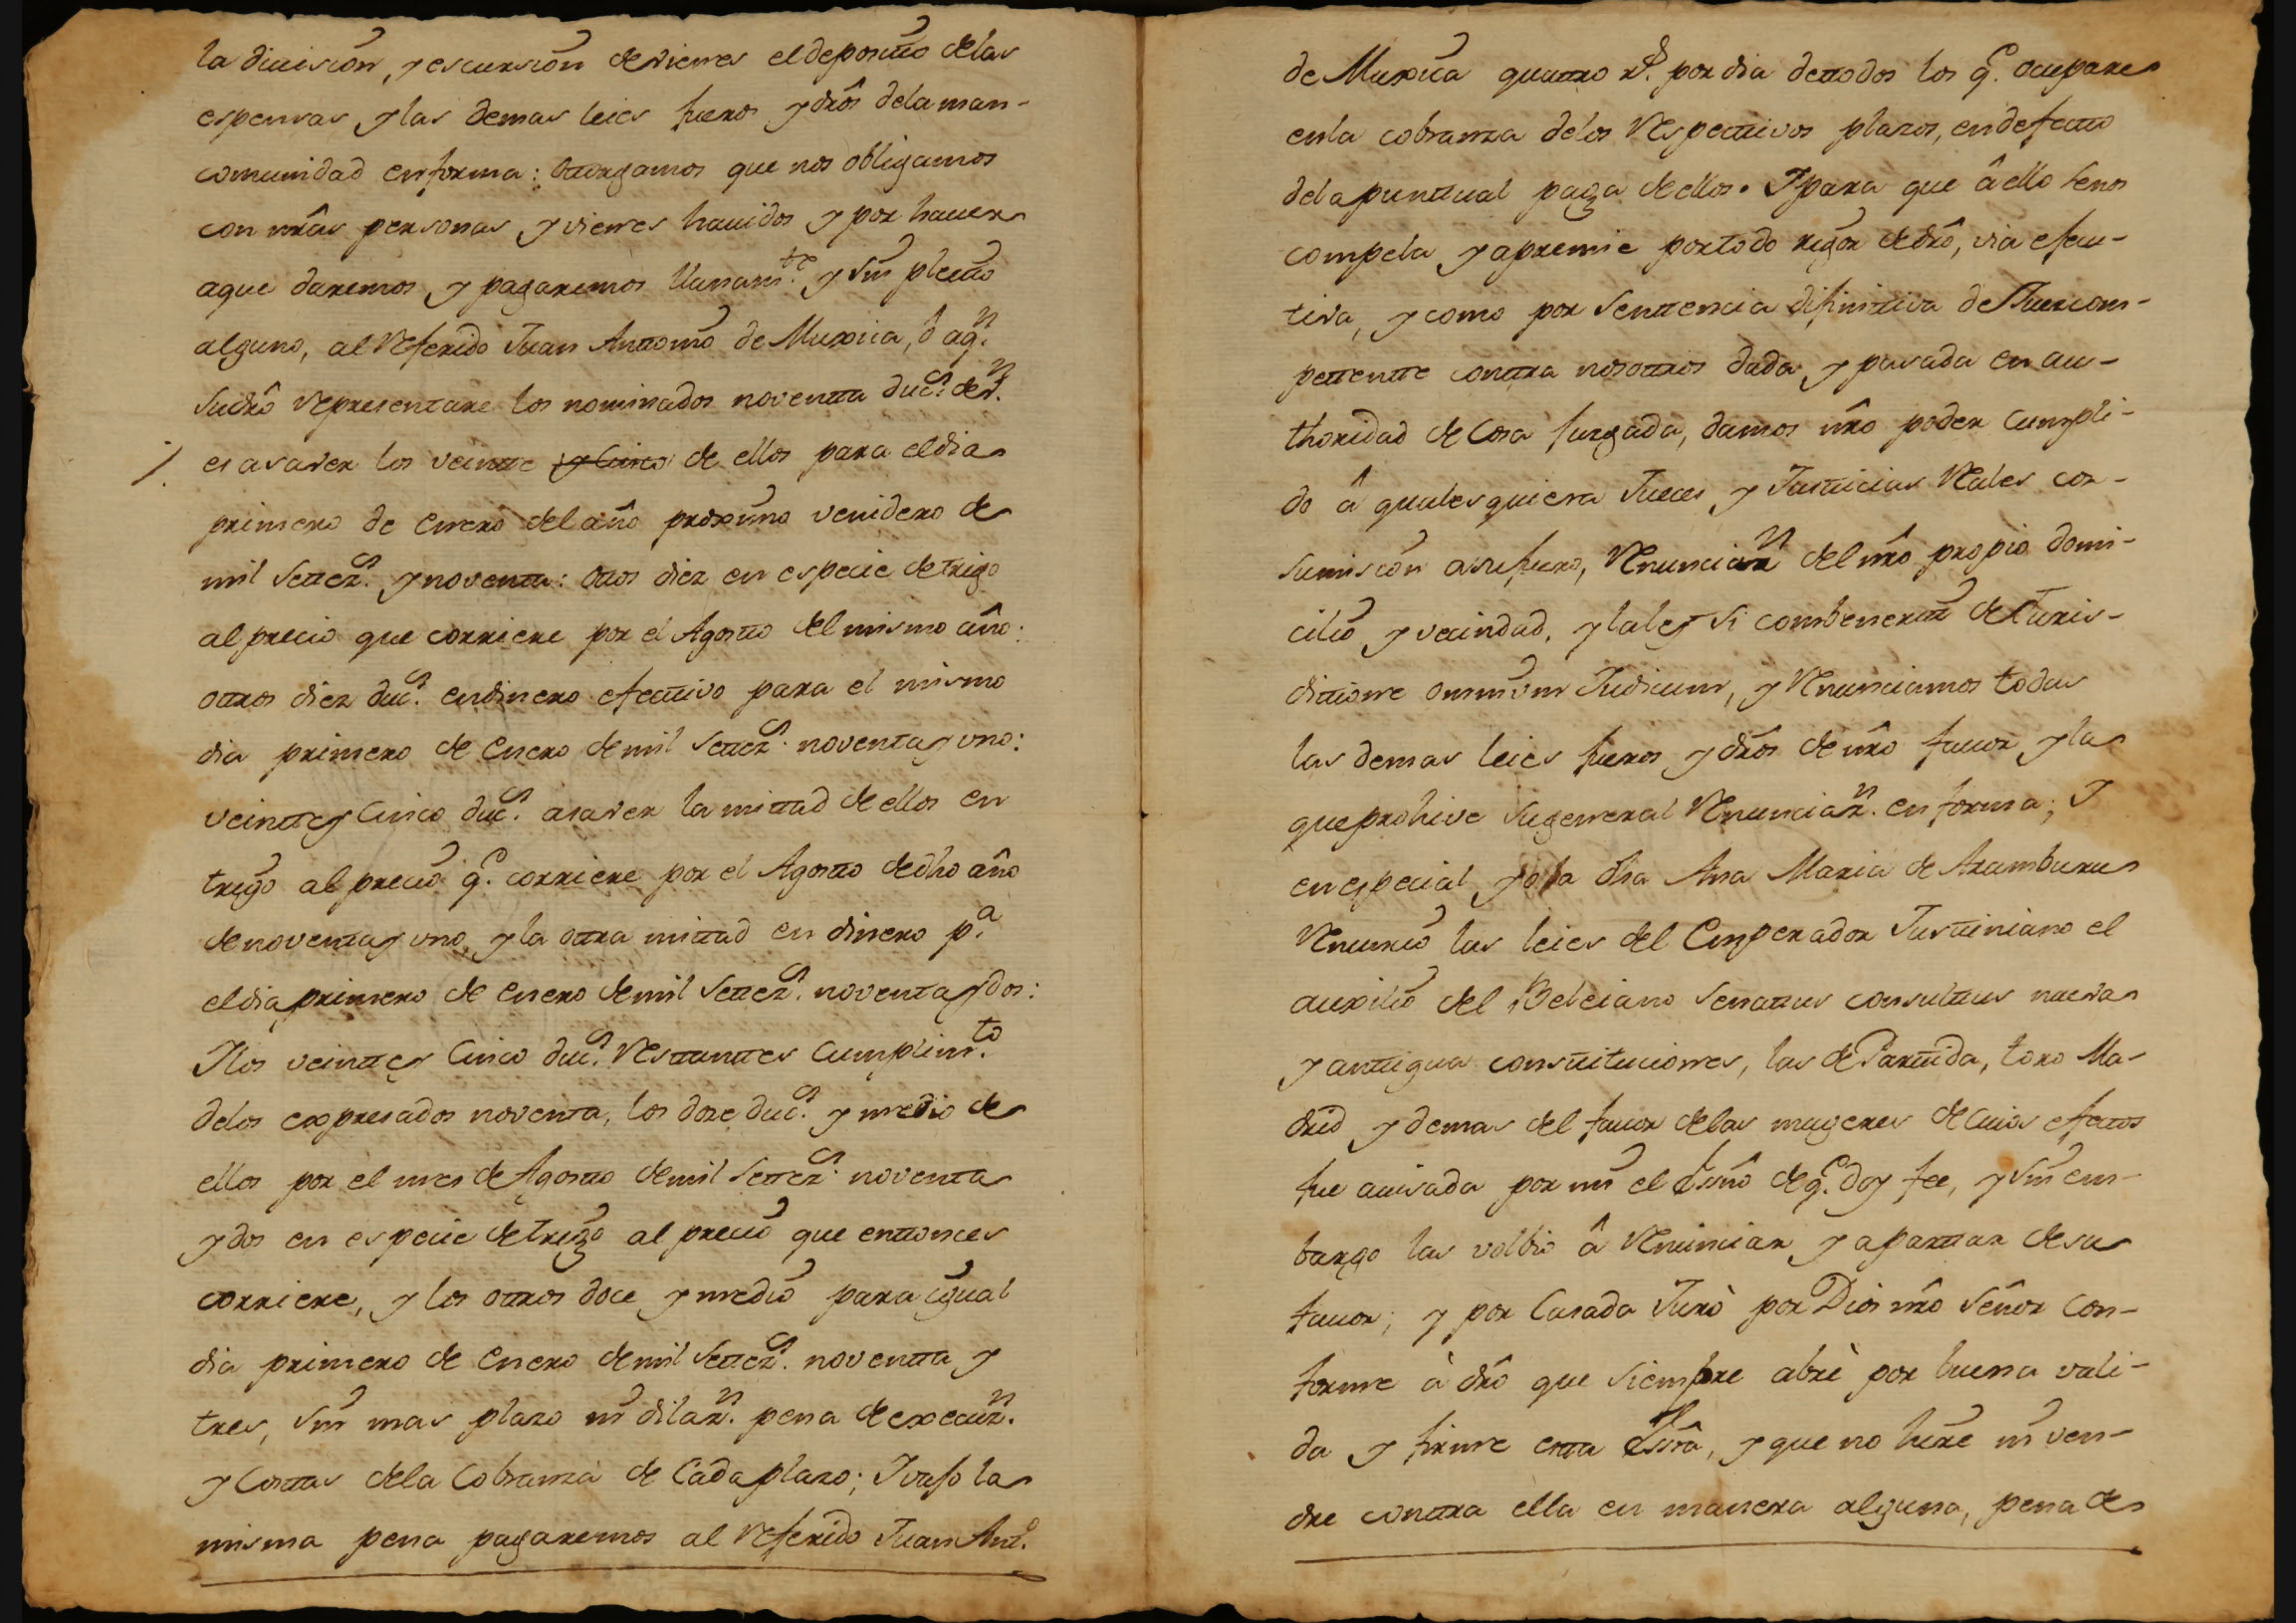 la diuision, y escursion de vienes el deposito de las
espensas y las demas leies fueros y drôs de la man-
comunidad en forma: Otorgamos que nos obligamos
con nrâs personas y vienes hauidos y por hauer
a que daremos y pagaremos llanam.te y sin pleito
alguno, al referido Juan Antonio de Muxica, ô a q.n
su drô representare los nominados noventa duc.s de v.n
/. es a saver los veintte y cinco de ellos para el dia
primero de enero del año proximo venidero de
mil settez.s y noventta: Otros diez en especie de trigo
al precio que corriere por el Agostto del mismo año:
ottros diez duc.s en dinero efecttivo para el mismo
dia primero de Enero de mil settez.s noventa y vno:
veintte y cinco duc.s a saver la mittad de ellos en
trigo al precio q.e corriere por el Agostto de dho año
de noventa y vno, y la ottra mittad en dinero p.a
el dia primero de enero de mil settez.s noventa y dos:
Y los veintte y cinco duc.s resttanttes cumplim.to
de los expresados noventa, los doze duc.s y medio de
ellos por el mes de Agostto de mil settez.s noventa
y dos en especie de trigo al precio que enttonces
corriere, y los ottros doce y medio para igual
dia primero de enero de mil settez.s noventta y
tres, sin mas plazo ni dilaz.n pena de execuz.n
y costtas de la cobranza de cada plazo; Y vajo la
misma pena pagaremos al referido Juan Ant.o
de Muxica quattro r.s por dia de ttodos los q.e ocupare
en la cobranza de los respecttivos plazos, en defectto
de la punttual paga de ellos. Y para que â ello se nos
compela y apremie por todo rigor de drô, via efecu-
tiva, y como por senttencia difinittiva de Juez com-
pettentte conttra nosottros dada y pasada en au-
thoridad de cosa juzgada, damos nrô poder cumpli-
do â qualesquiera Jueces y Justticias reales con
sumision a su fuero, renunciaz.n del nrô propio domi-
cilio y vecindad, y la ley si combenerit de Juris-
dittione omnium Judicum, y renunciamos todas
las demas leies fueros y drôs de nrô fauor y la
que prohive su general renunciaz.n en forma; Y
en especial yo la dha Ana Maria de Aramburu
renuncio las leies del Emperador Justtiniano el
auxilio del Beleiano senattus consulttus nueva
y anttigua consttituciones, las de Parttida, toro Ma-
drid y demas del fauor de las mugeres de cuios efecttos
fue auisada por mi el Essnô de q.e doy fee, y sin em-
bargo las volbio â renunciar y aparttar de su
fauor; y por casada Jurò por Dios nrô Señor con-
forme à drô que siempre abrè por buena vali-
da y firme estta Essrâ, y que no hire ni ven-
dre conttra ella en manera alguna, pena de